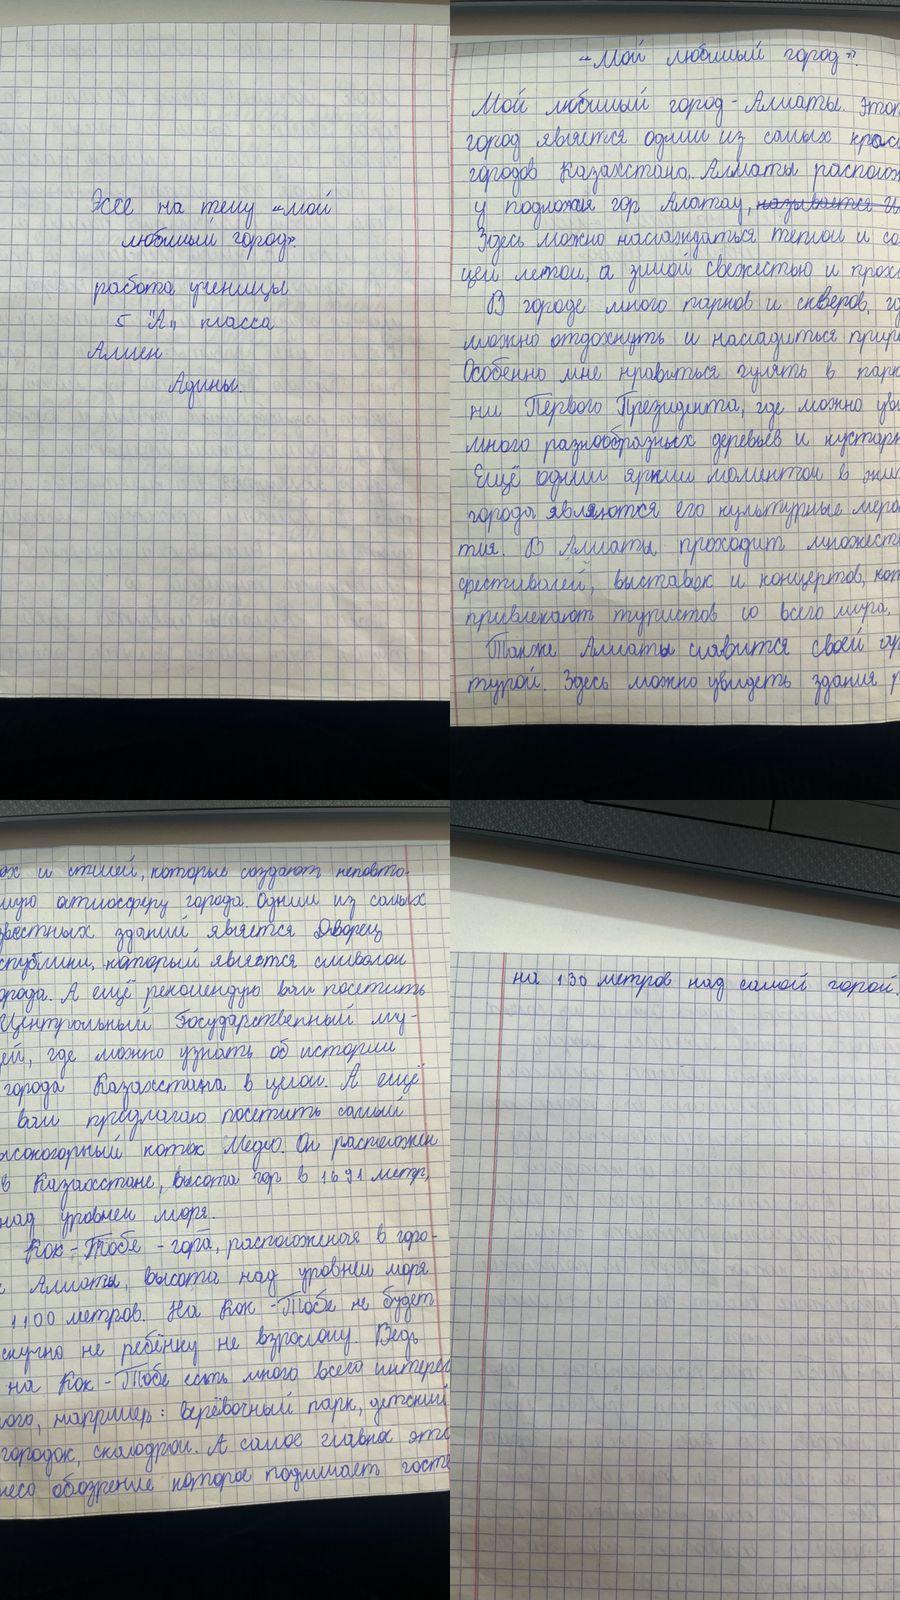 Эссе на тему «мой
любимый город»
работа ученицы
5 "А„ класса
Алиен
Адины.
«Мой любимый город»
Мой любимый город - Алматы. Этот
город является одним из самых крас
городов Казахстана. Алматы располож
у подложия гор Алатау,
Здесь можно наслаждаться теплом и со
цем летом, а зимой свежестью и прох
В городе много парков и скверов, гд
можно отдохнуть и насладиться приро
Особенно мне нравиться гулять в парк
ни Первого Президента, где можно уви
много разнообразных деревьев и кустарн
Ещё одним ярким моментом в жиз
города являются его культурные меро
тия. В Алматы проходит множеств
фестивалей, выставок и концертов, кот
привлекают туристов со всего мира.
Также Алматы славится своей ар
турой. Здесь можно увидеть здания р
ох и стилей, которые создают неповто
мую атмосферу города. Одним из самых
звестных зданий является Дворец
спублики, который является символом
орода. А ещё рекомендую вам посетить
Центральный Государственный му-
ей, где можно узнать об истории
города Казахстана в целом. А ещё
вам предлагаю посетить самый
ысокогорный каток Медео. Он расположен
в Казахстане, высота гор в 1691 метр,
над уровнем моря.
Кок-Тобе - гора, расположеная в горо-
е Алматы, высота над уровнем моря
1100 метров. На Кок-Тобе не будет
скучно не ребёнку не взрослому. Ведь
на Кок-Тобе есть много всего интерес
ного, например: верёвочный парк, детский
городок, скалодром. А самое главное это
лесо обозрение которое поднимает госте
на 130 метров над самой горой.